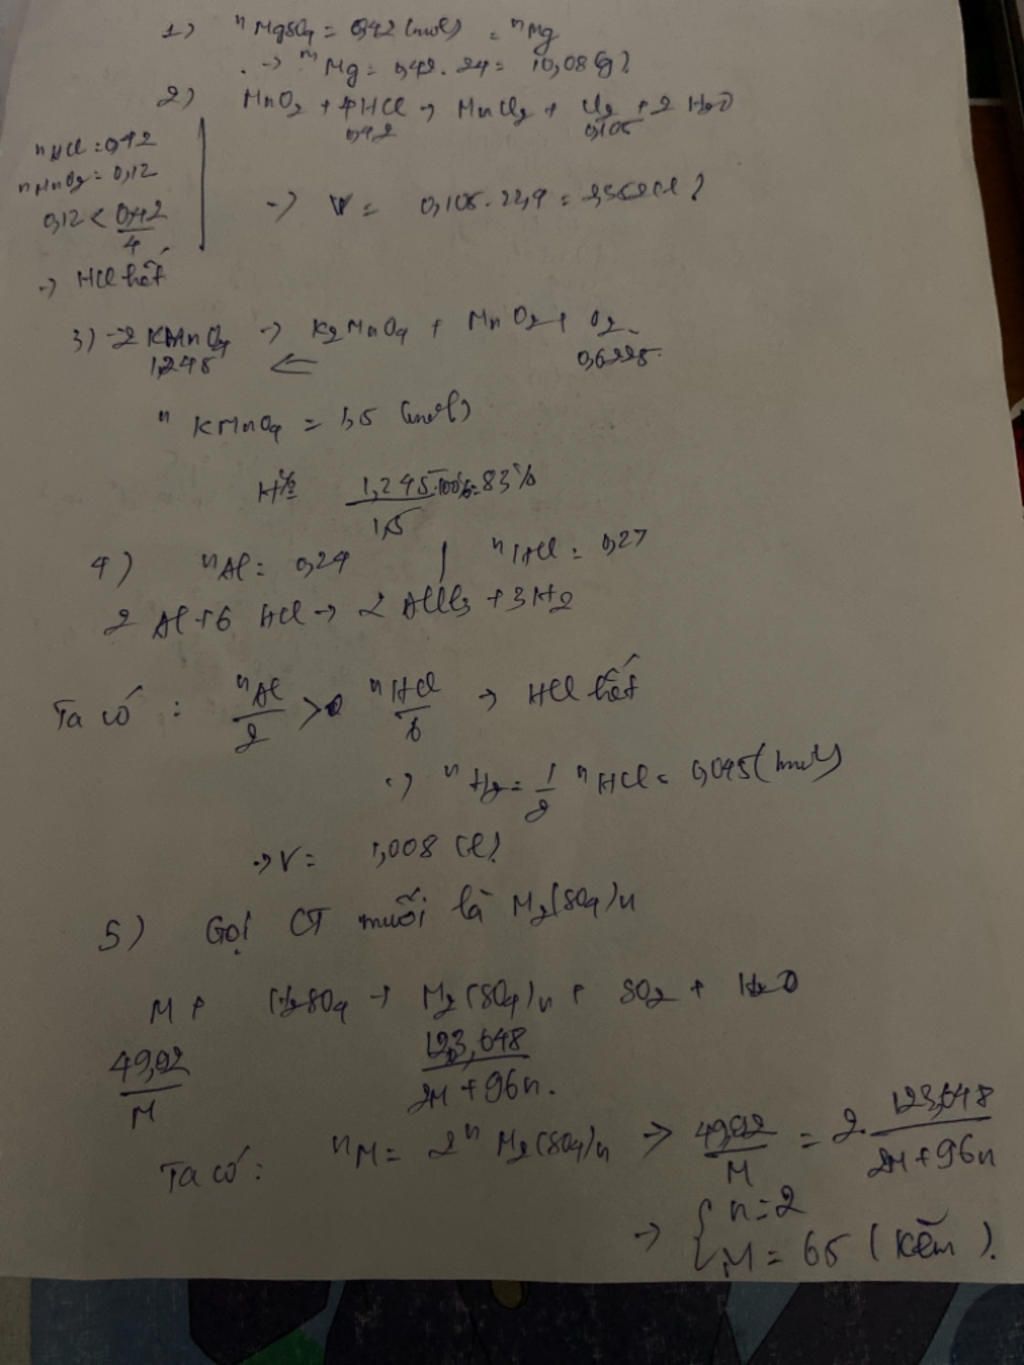 1) nMgSO4 = 0,42 (mol) = nMg
-> mMg = 0,42 . 24 = 10,08 (g)
2) MnO2 + 4HCl -> MnCl2 + Cl2 + 2 H2O
0,42 0,105
nHCl = 0,42
nMnO2 = 0,12
0,12 < 0,42/4
-> HCl hết
-> V = 0,105 . 22,4 = 2,352 (l)
3) 2 KMnO4 -> K2MnO4 + MnO2 + O2
1,245 <= 0,6225
nKMnO4 = 1,5 (mol)
H% = 1,245/1,5 . 100% = 83%
4) nAl = 0,24 | nHCl = 0,27
2 Al + 6 HCl -> 2 AlCl3 + 3H2
Ta có : nAl/2 > nHCl/6 -> HCl hết
-> nH2 = 1/2 nHCl = 0,045 (mol)
-> V = 1,008 (l)
5) Gọi CT muối là M2(SO4)n
M + H2SO4 -> M2(SO4)n + SO2 + H2O
49,92/M 123,648/2M + 96n
Ta có : nM = 2 nM2(SO4)n -> 49,92/M = 2 . 123,648/2M + 96n
-> { n = 2
M = 65 (Kẽm).